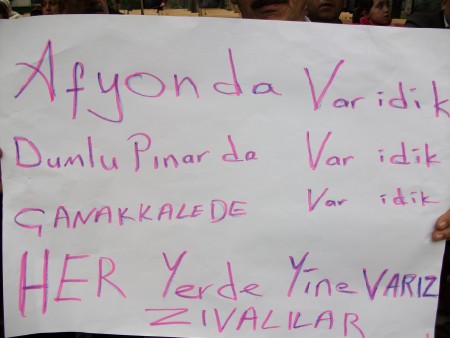 Afyonda Var idik
DumluPınarda Var idik
ÇANAKKALEDE Var idik
HER Yerde Yine VARIZ
ZIVALILAR